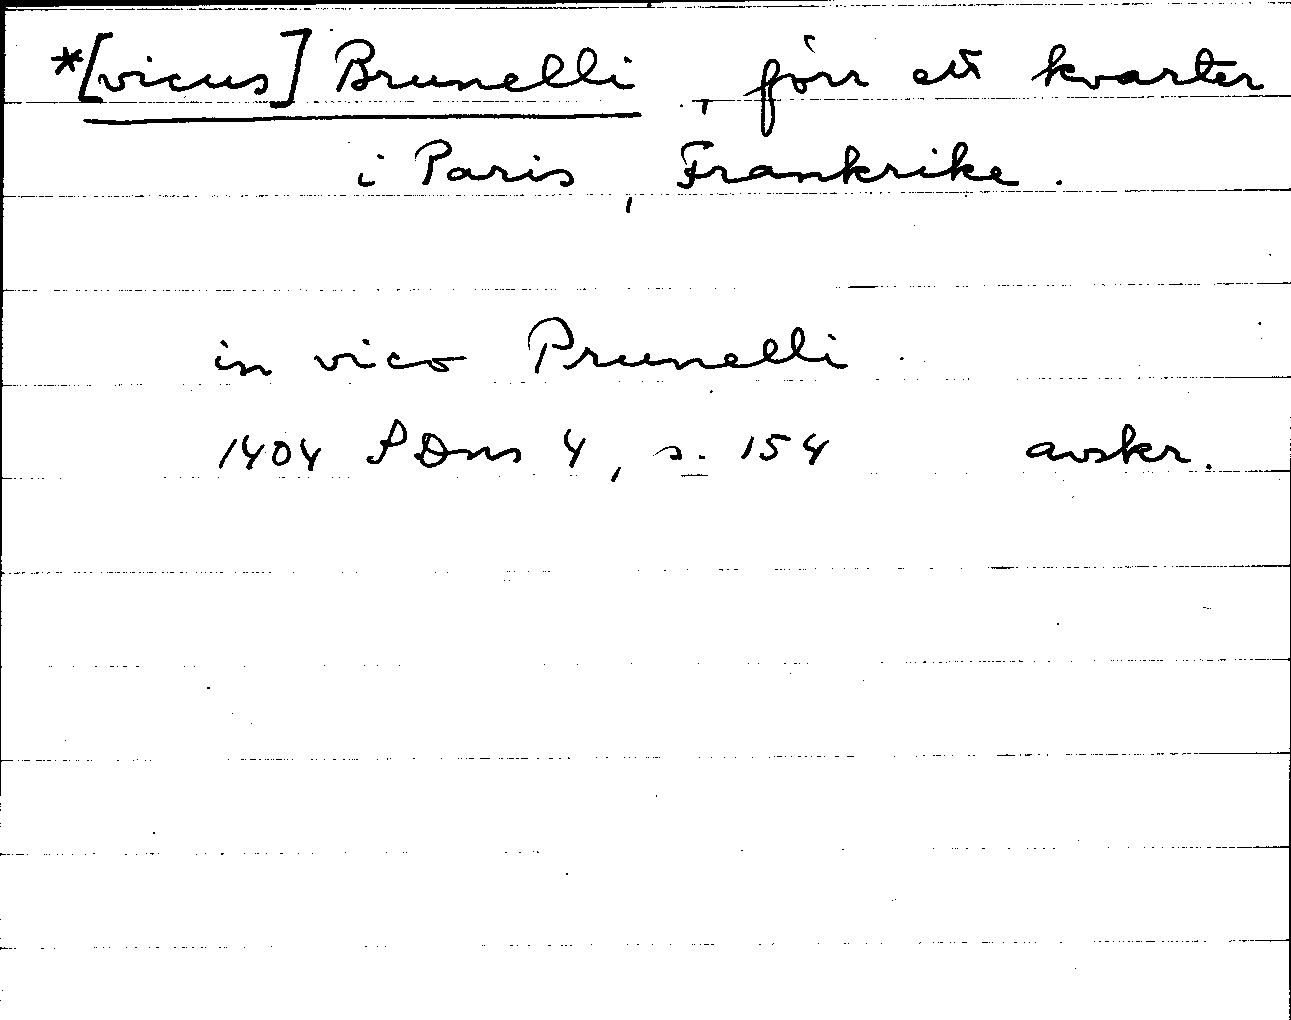 *[vicus] Brunelli, förr ett kvarter
i Paris, Frankrike.
in vico Prunelli
1404 SDns 4, s. 154 avskr.